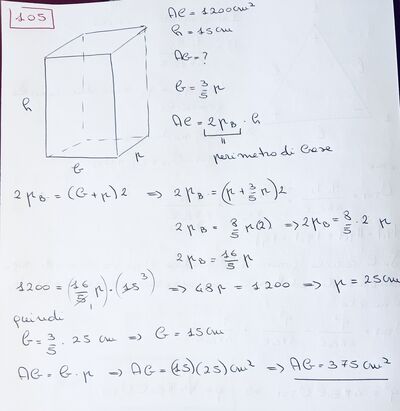 105
Al = 1200 cm²
h = 15 cm
AB = ?
b = 3/5 p
Al = 2pB · h
"
perimetro di base
h
b
p
2pB = (b + p)2 ⇒ 2pB = (p + 3/5 p)2
2pB = 8/5 p(2) ⇒ 2pB = 8/5 · 2 p
2pB = 16/5 p
1200 = (16/5 p) · (15 3) ⇒ 48p = 1200 ⇒ p = 25 cm
1
quindi
b = 3/5 · 25 cm ⇒ b = 15 cm
AB = b · p ⇒ AB = (15)(25) cm² ⇒ AB = 375 cm²